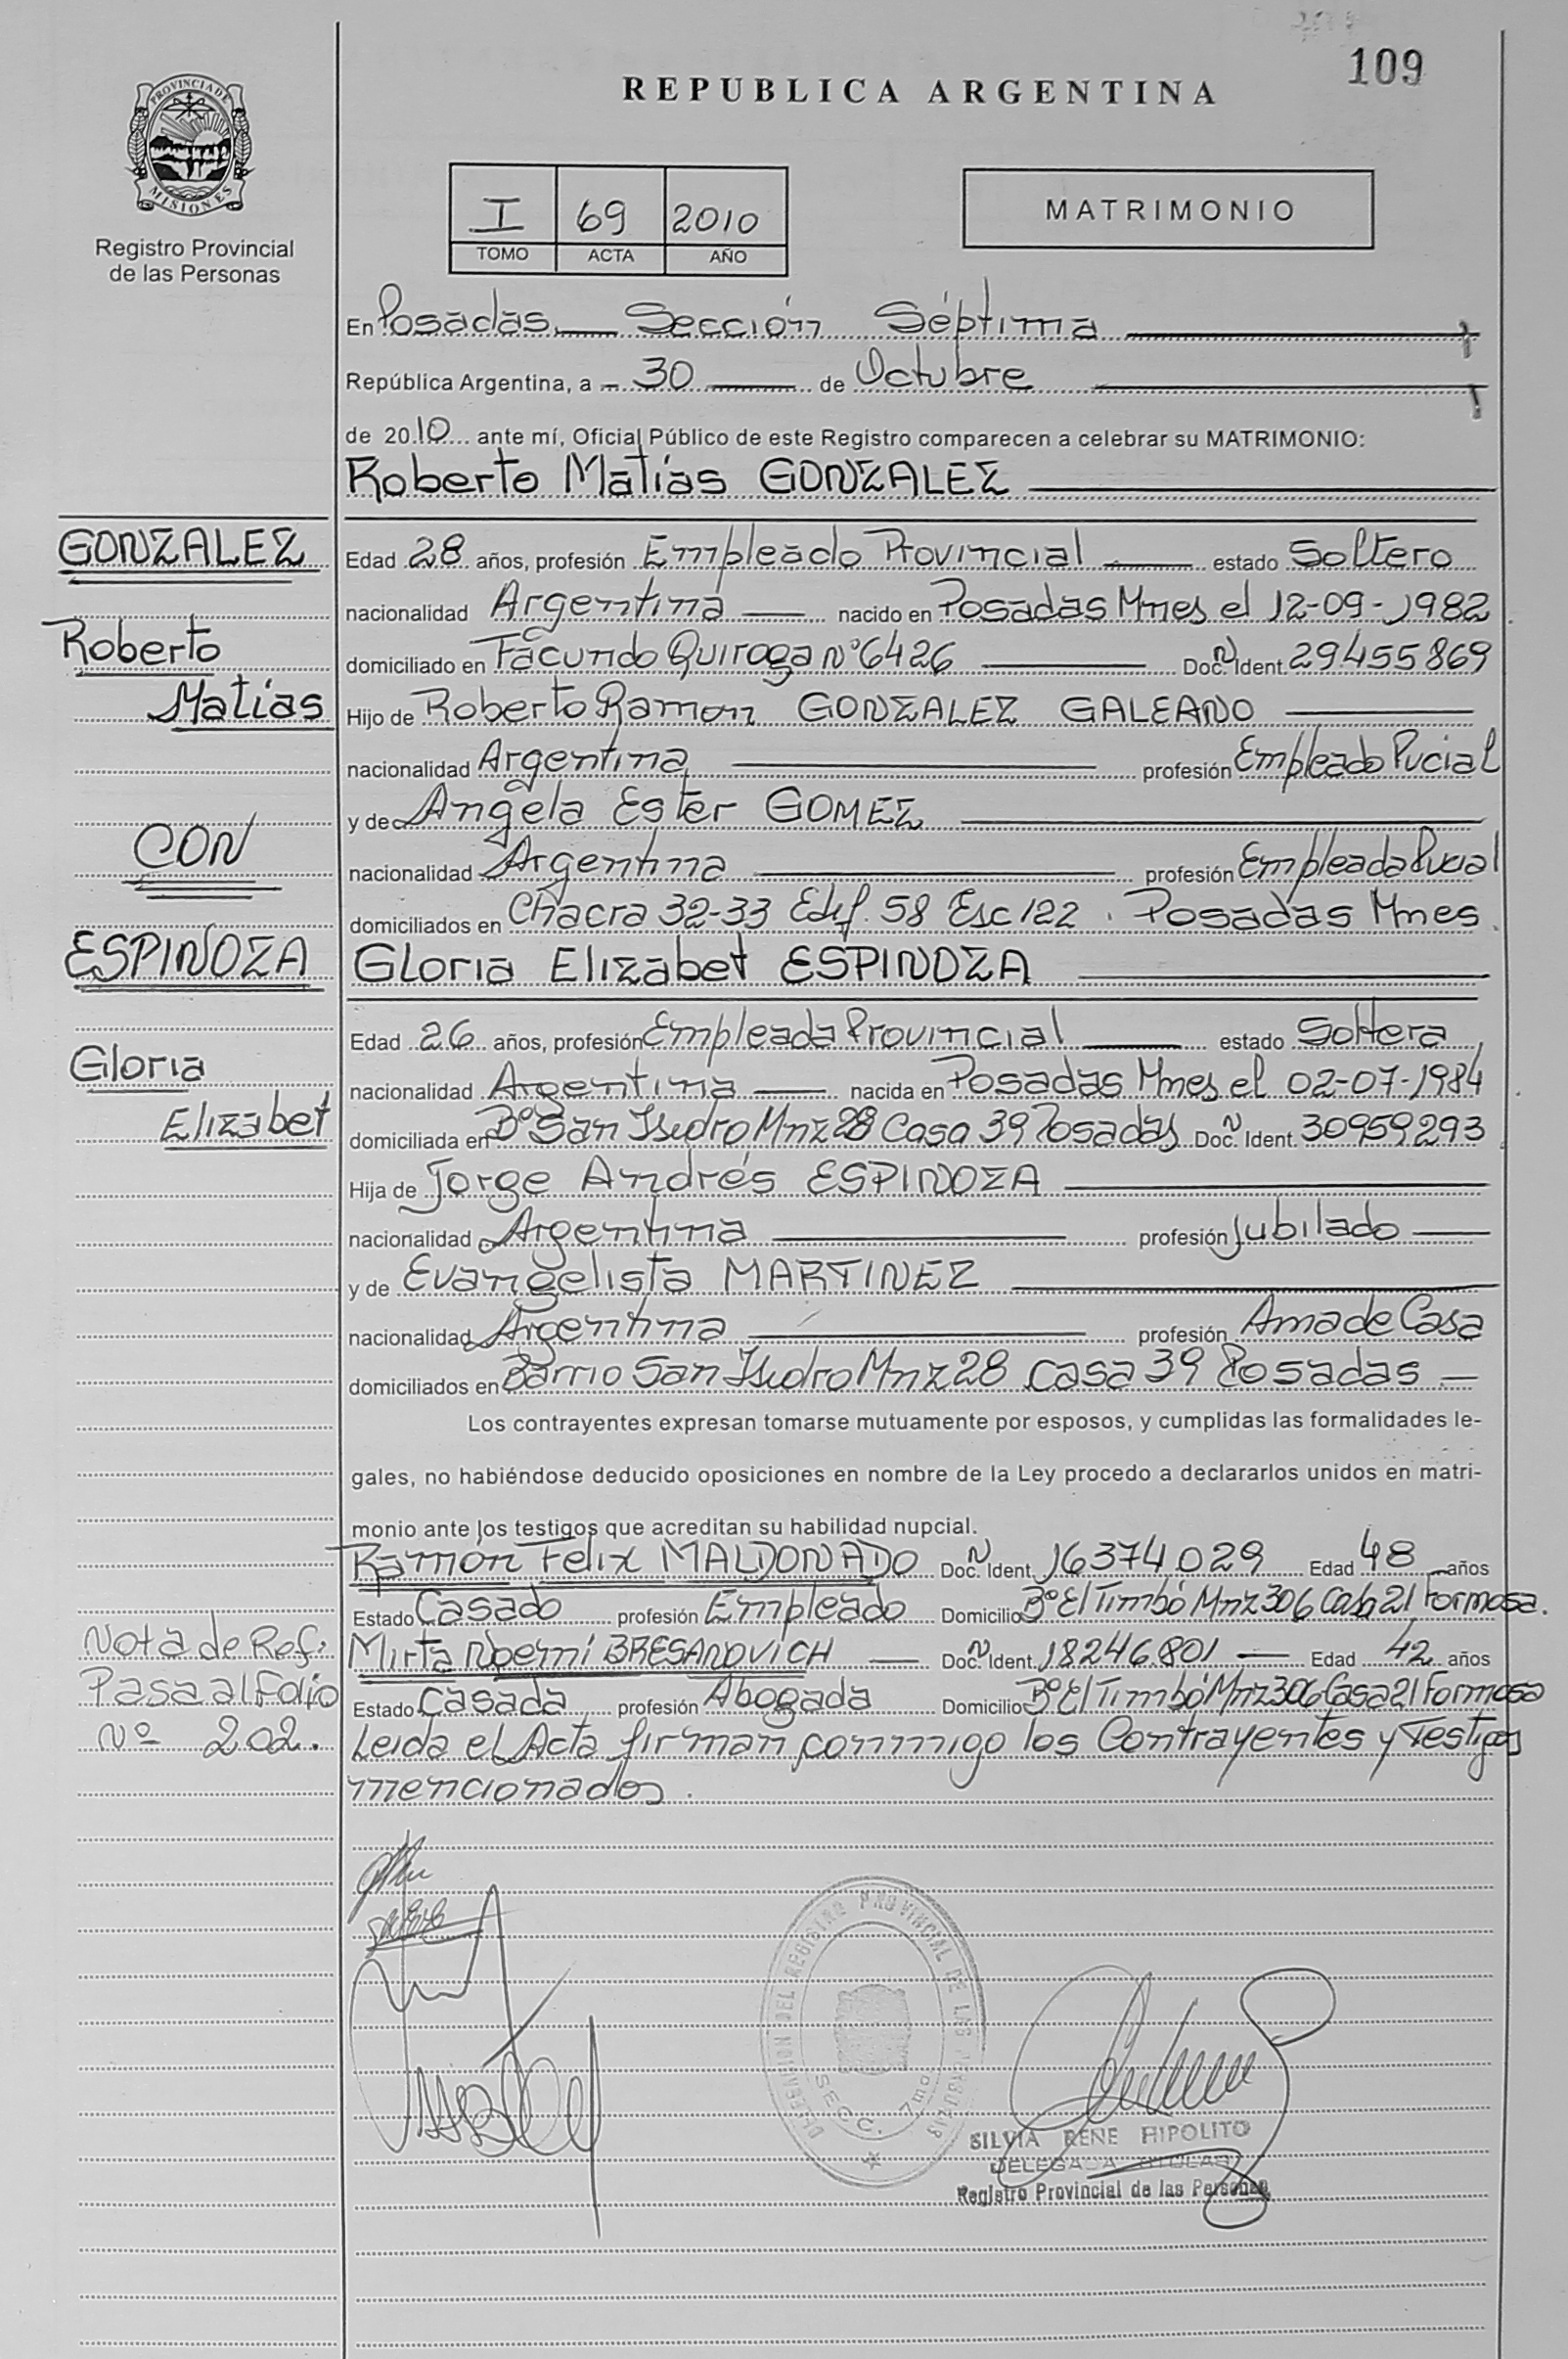 109
REPUBLICA ARGENTINA
PROVINCIA DE MISIONES
Registro Provincial
de las Personas
I 69 2010
TOMO ACTA AÑO
MATRIMONIO
En Posadas Sección Séptima
República Argentina, a 30 de Octubre
de 2010 ante mí, Oficial Público de este Registro comparecen a celebrar su MATRIMONIO:
Roberto Matías GONZALEZ
GONZALEZ
Roberto
Matías
CON
ESPINOZA
Gloria
Elizabet
Edad 28 años, profesión Empleado Provincial estado Soltero
nacionalidad Argentina nacido en Posadas Mnes el 12-09-1982
domiciliado en Facundo Quiroga nº 6426 Doc. Nº Ident. 29455869
Hijo de Roberto Ramon GONZALEZ GALEANO
nacionalidad Argentina profesión Empleado Pucial
y de Angela Ester GOMEZ
nacionalidad Argentina profesión Empleada Pucial
domiciliados en Chacra 32-33 Edif. 58 Esc 122. Posadas Mnes.
Gloria Elizabet ESPINOZA
Edad 26 años, profesión Empleada Provincial estado Soltera
nacionalidad Argentina nacida en Posadas Mnes el 02-07-1984
domiciliada en Bº San Isidro Mnz 28 Casa 39 Posadas Doc. N Ident. 30959293
Hija de Jorge Andrés ESPINOZA
nacionalidad Argentina profesión Jubilado
y de Evangelista MARTINEZ
nacionalidad Argentina profesión Ama de Casa
domiciliados en Barrio San Isidro Mnz 28 Casa 39 Posadas
Los contrayentes expresan tomarse mutuamente por esposos, y cumplidas las formalidades le-
gales, no habiéndose deducido oposiciones en nombre de la Ley procedo a declararlos unidos en matri-
monio ante los testigos que acreditan su habilidad nupcial.
Ramón Felix MALDONADO Doc. N Ident. 16374029 Edad 48 años
Estado Casado profesión Empleado Domicilio Bº El Timbó Mnz 306 Casa 21 Formosa.
Mirta Noemí BRESANOVICH Doc. N Ident. 18246.801 Edad 42 años
Estado Casada profesión Abogada Domicilio Bº El Timbó Mnz 306 Casa 21 Formosa
Nota de Ref:
Pasa al Folio
Nº 202.
Leida el Acta firman conmigo los Contrayentes y Testigos
mencionados.
DELEGACION DEL REGISTRO PROVINCIAL DE LAS PERSONAS
SECC. 7ma
SILVIA RENE HIPOLITO
DELEGADA TITULAR
Registro Provincial de las Personas